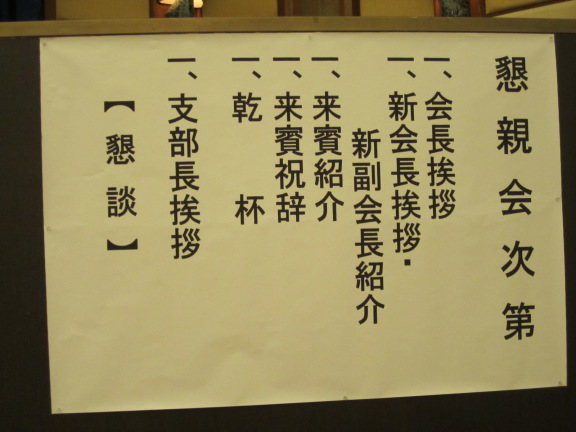 懇親会次第
一、会長挨拶
一、新会長挨拶・
新副会長紹介
一、来賓紹介
一、来賓祝辞
一、乾　杯
一、支部長挨拶
【懇談】